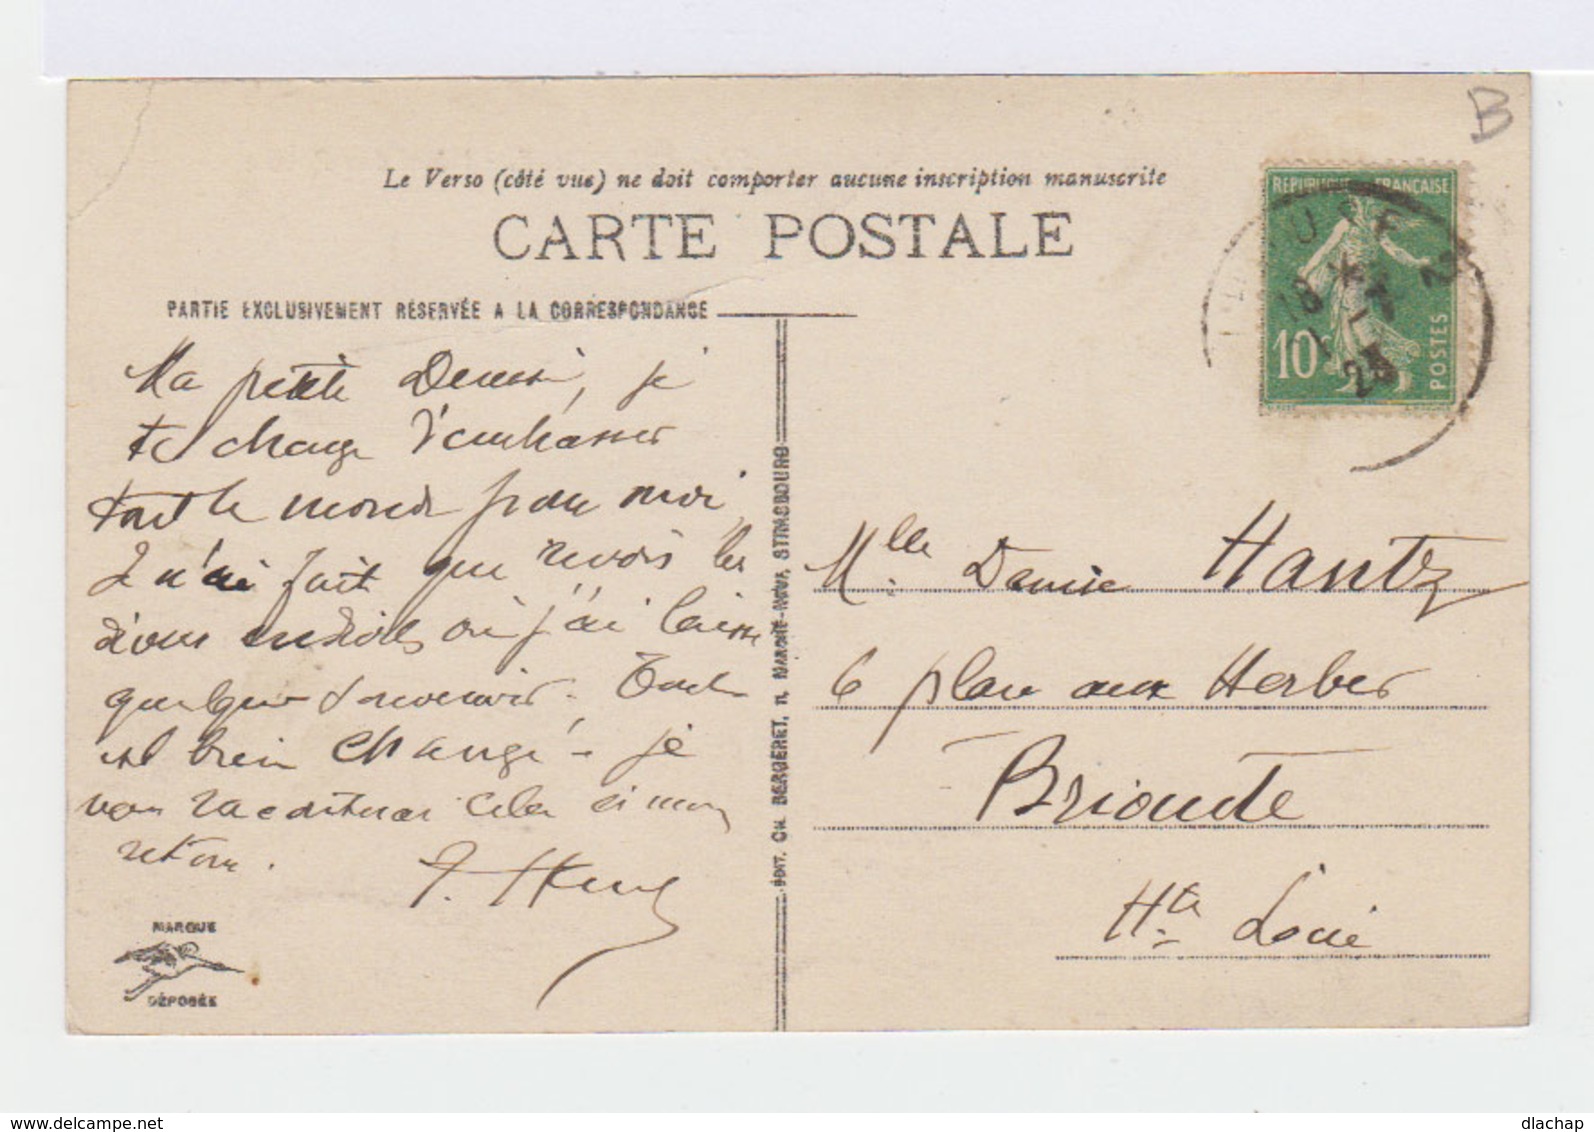 B
Le Verso (côté vue) ne doit comporter aucune inscription manuscrite
CARTE POSTALE
REPUBLIQUE FRANÇAISE
10
POSTES
18
23
PARTIE EXCLUSIVEMENT RÉSERVÉE A LA CORRESPONDANCE
Ma petite Denise, je
te charge d'embrasser
tout le monde pour moi,
Je n'ai fait que revoir les
endroits où j'ai laissé
quelque souvenir. Tout
est bien changé - je
vous raconterai cela à mon
retour.
MARQUE
DÉPOSÉE
ÉDIT. CH. BERGERET, 11, MARCHÉ-NEUF, STRASBOURG
Mlle Denise Hantz
6 place aux Herbes
Brioude
Hte Loire
delcampe.net
dlachap